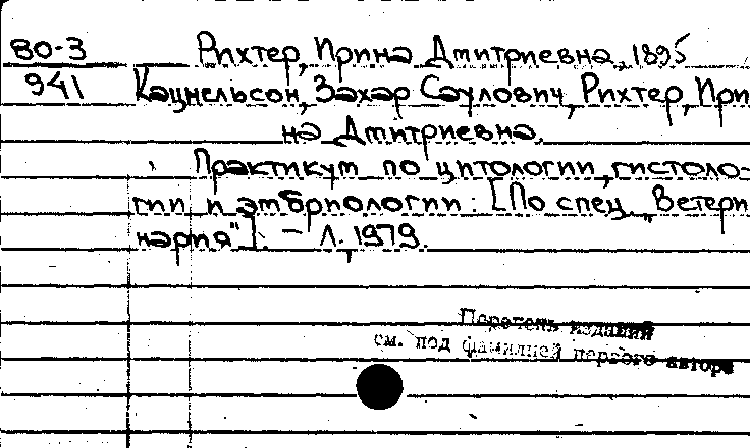 ВО-3 Рихтер, Ирина Дмитриевна, 1895
941 Кацнельсон, Захар Саулович, Рихтер, Ири
на Дмитриевна.
Практикум по цитологии, гистоло-
гии и эмбриологии: [По спец. "Ветери
нария"]. – Л., 1979.
Перечень изданий
см. под фамилией первого автора